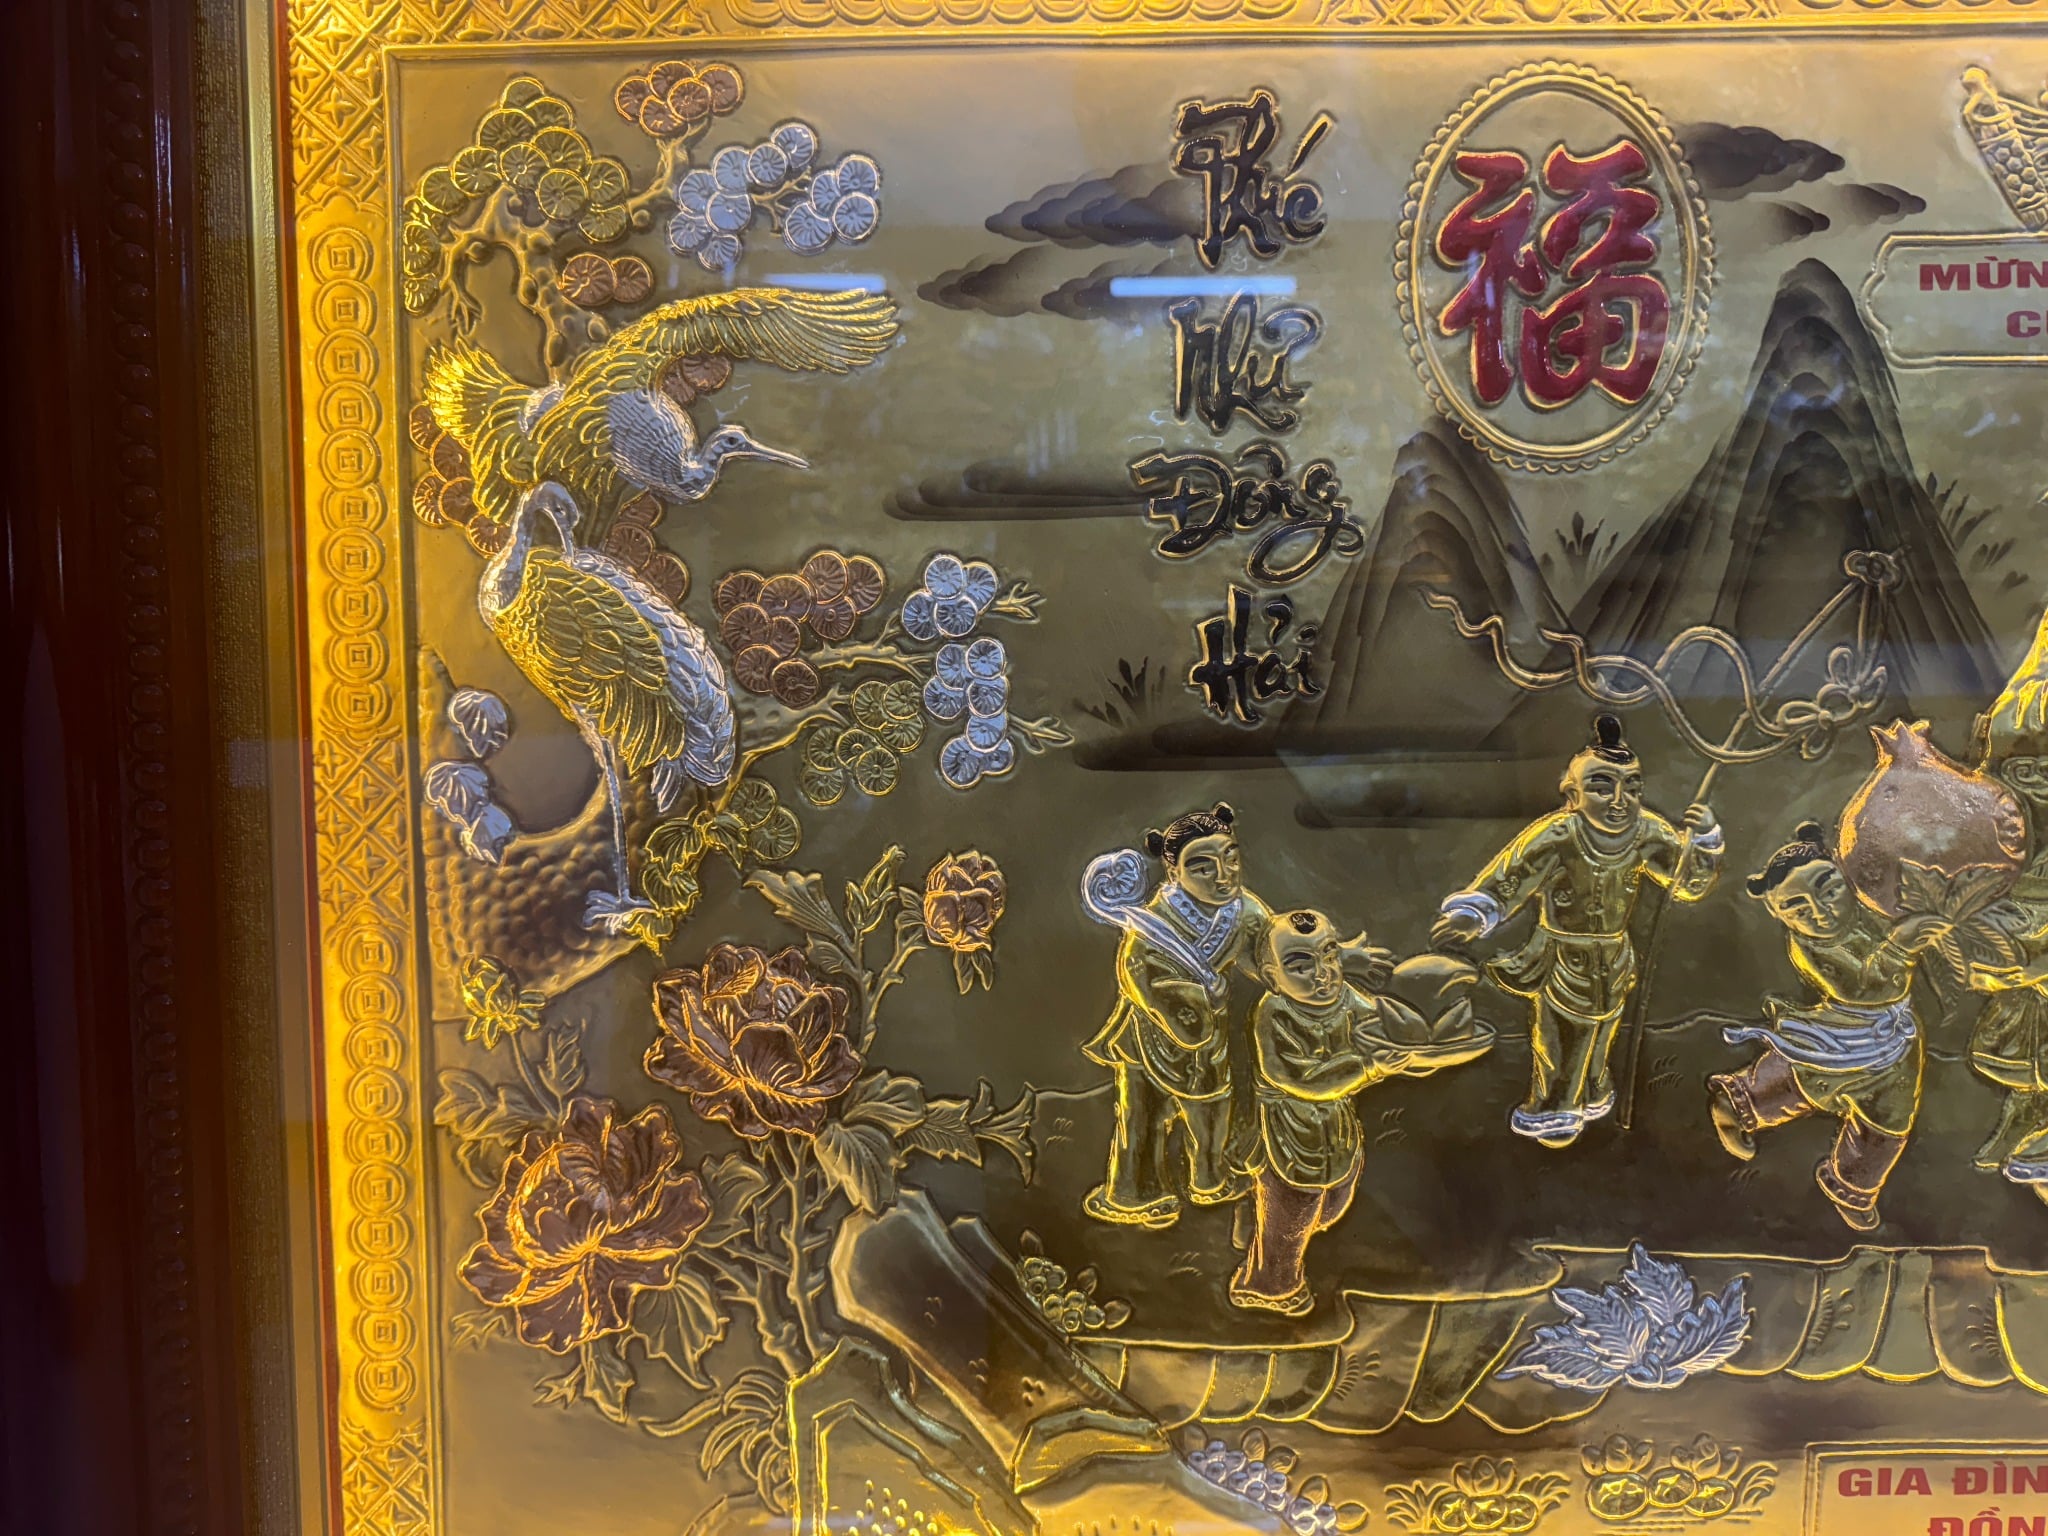 Phúc
Như
Đông
Hải
福
MỪN
GIA ĐÌN
ĐỒN